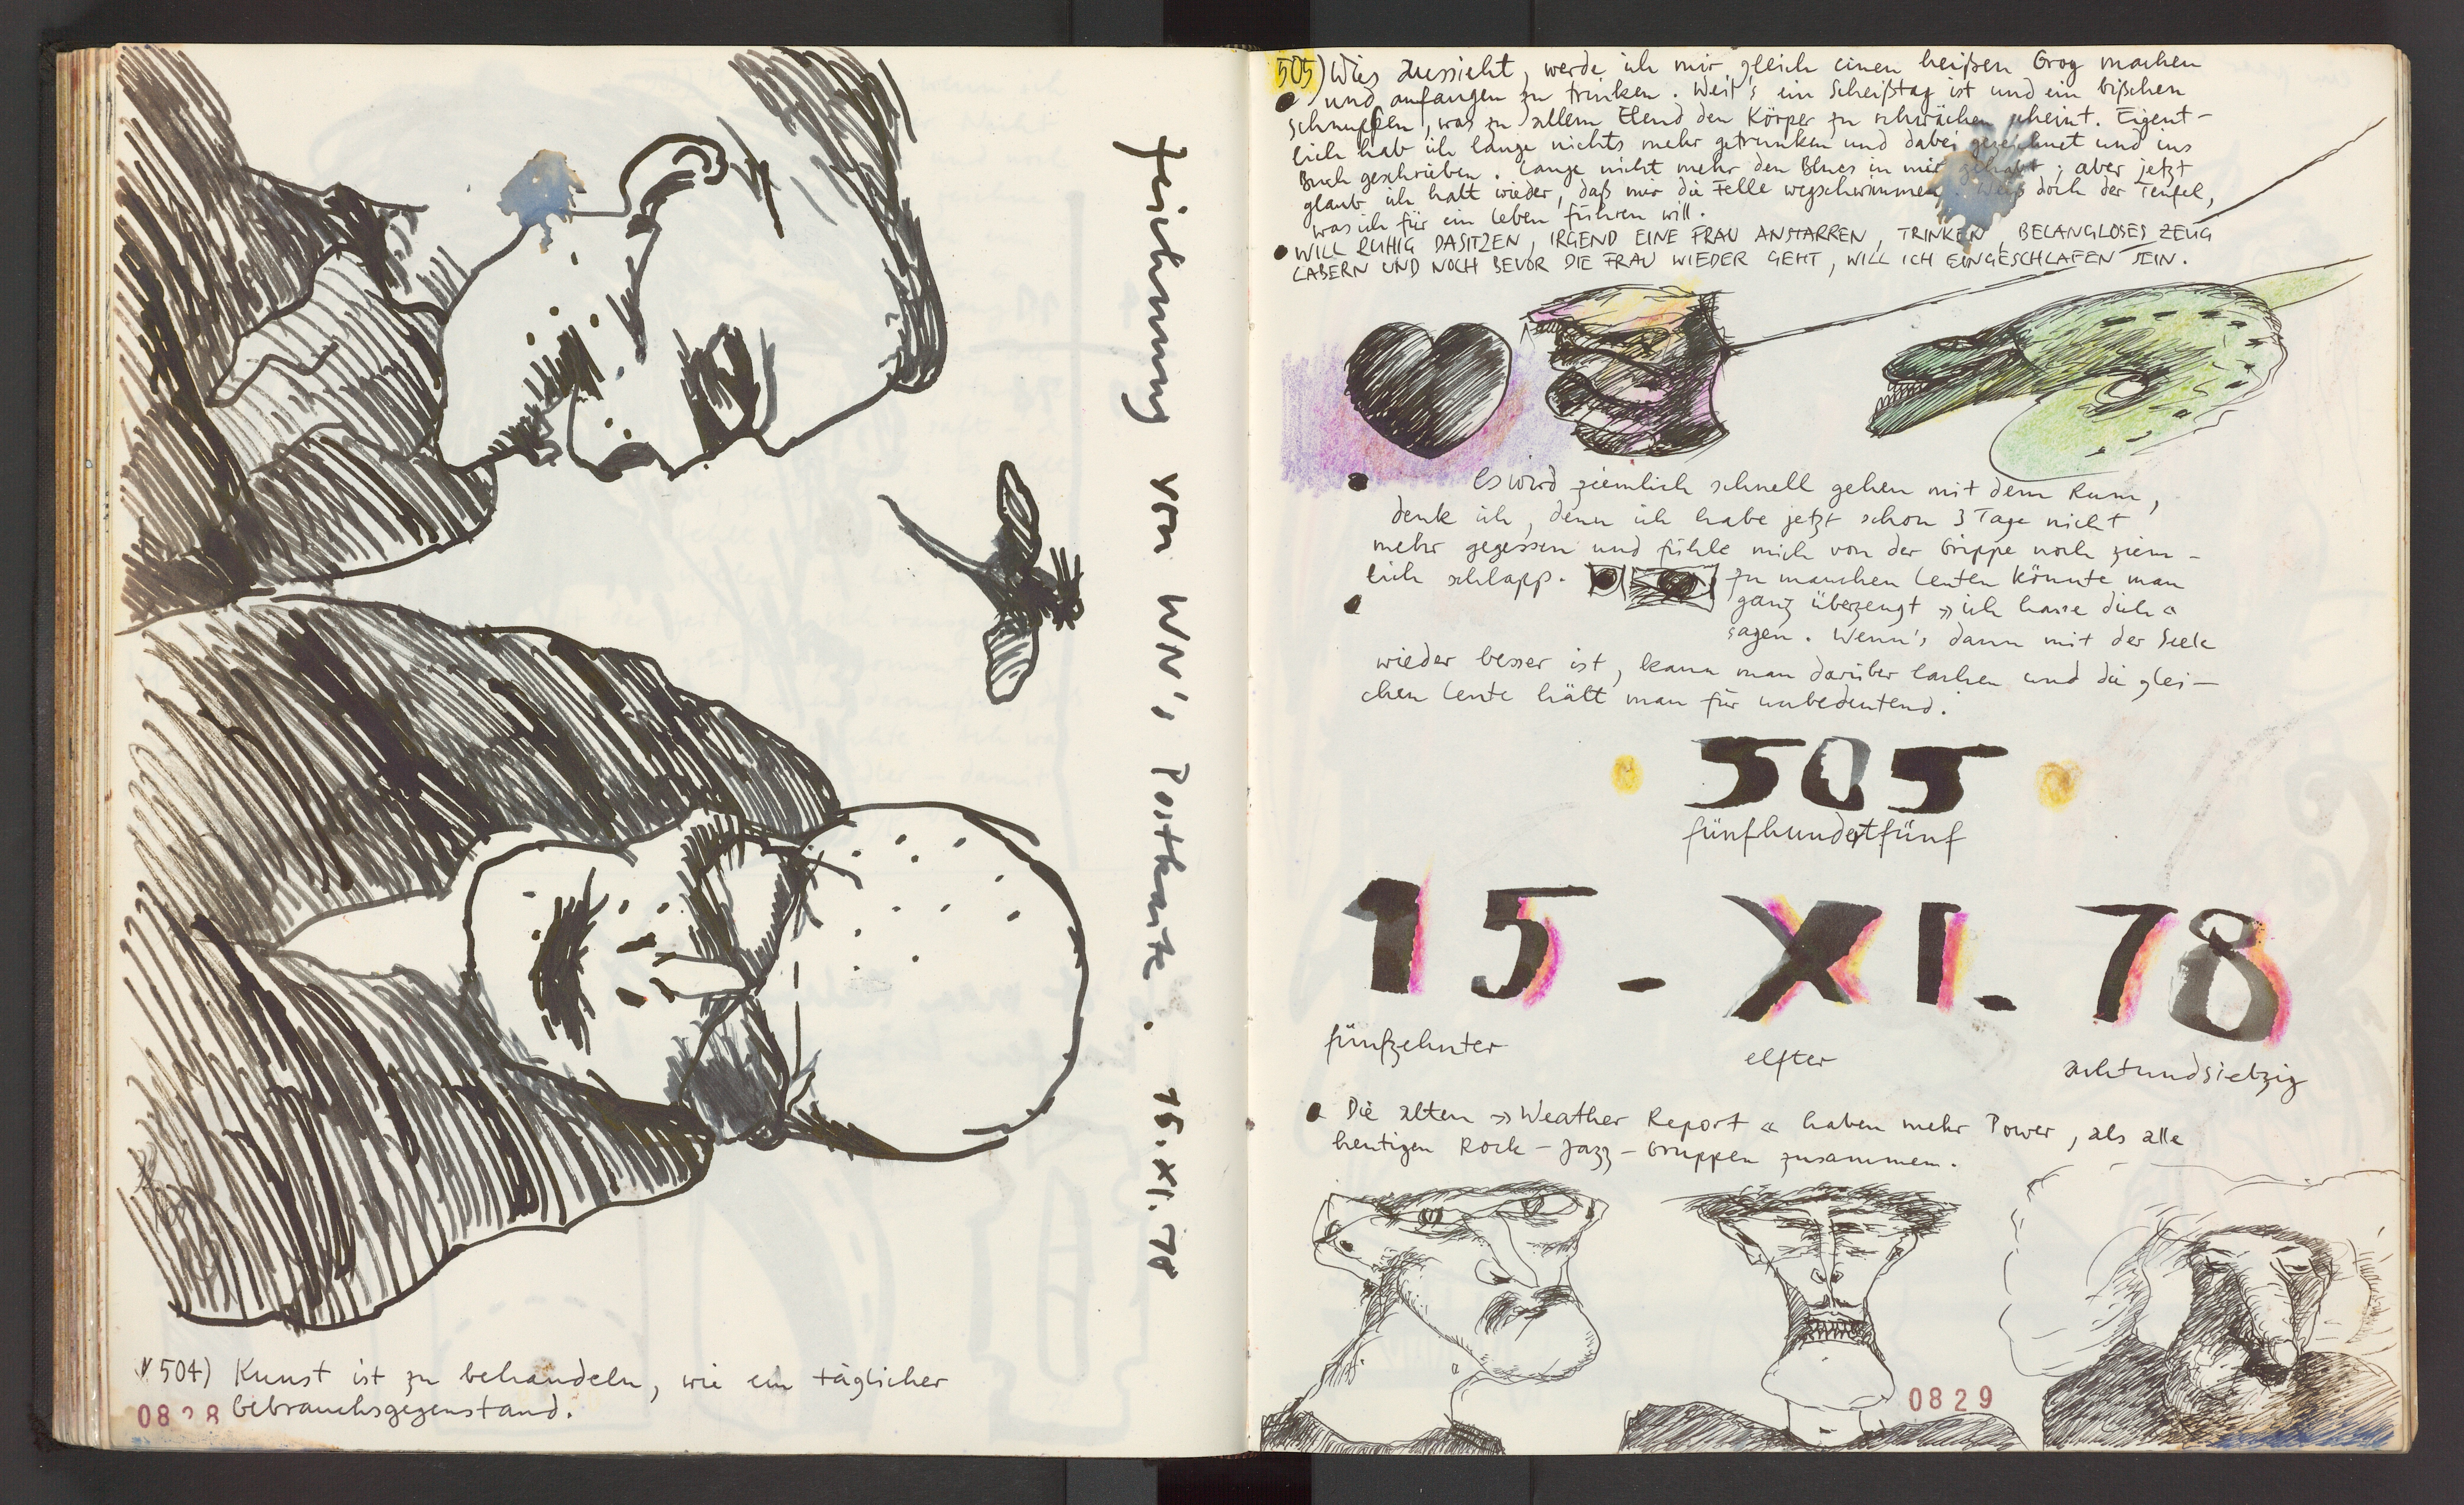 Zeichnung von WN's Postkarte. 16.XI.78
504) Kunst ist zu behandeln, wie ein täglicher
Gebrauchsgegenstand.
0828
505) Wies aussieht, werde ich mir gleich einen heißen Grog machen
und anfangen zu trinken. Weil's ein Scheißtag ist und ein bißchen
Schnupfen, was zu allem Elend den Körper zu schwächen scheint. Eigent-
lich hab ich lange nichts mehr getrunken und dabei gezeichnet und ins
Buch geschrieben. Lange nicht mehr den Blues in mir gehabt; aber jetzt
glaub ich halt wieder, daß mir die Felle wegschwimmen. Weiß doch der Teufel,
was ich für ein Leben führen will.
WILL RUHIG DASITZEN, IRGEND EINE FRAU ANSTARREN, TRINKEN, BELANGLOSES ZEUG
LABERN UND NOCH BEVOR DIE FRAU WIEDER GEHT, WILL ICH EINGESCHLAFEN SEIN.
Es wird ziemlich schnell gehen mit dem Rum,
denk ich, denn ich habe jetzt schon 3 Tage nicht
mehr gegessen und fühle mich von der Grippe noch ziem-
lich schlapp.
Zu manchen Leuten könnte man
ganz überzeugt »ich hasse dich«
sagen. Wenn's dann mit der Seele
wieder besser ist, kann man darüber lachen und die glei-
chen Leute hält man für unbedeutend.
505
fünfhundertfünf
15 - XI - 78
fünfzehnter elfter achtundsiebzig
Die alten »Weather Report« haben mehr Power, als alle
heutigen Rock-Jazz-Gruppen zusammen.
0829